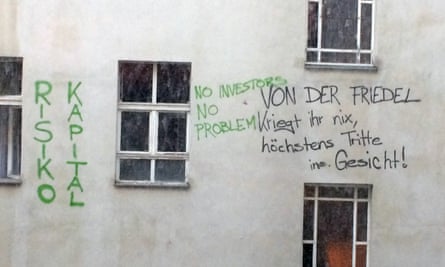 RISIKO
KAPITAL
NO INVESTORS
NO
PROBLEM
VON DER FRIEDEL
Kriegt ihr nix,
höchstens Tritte
ins Gesicht!